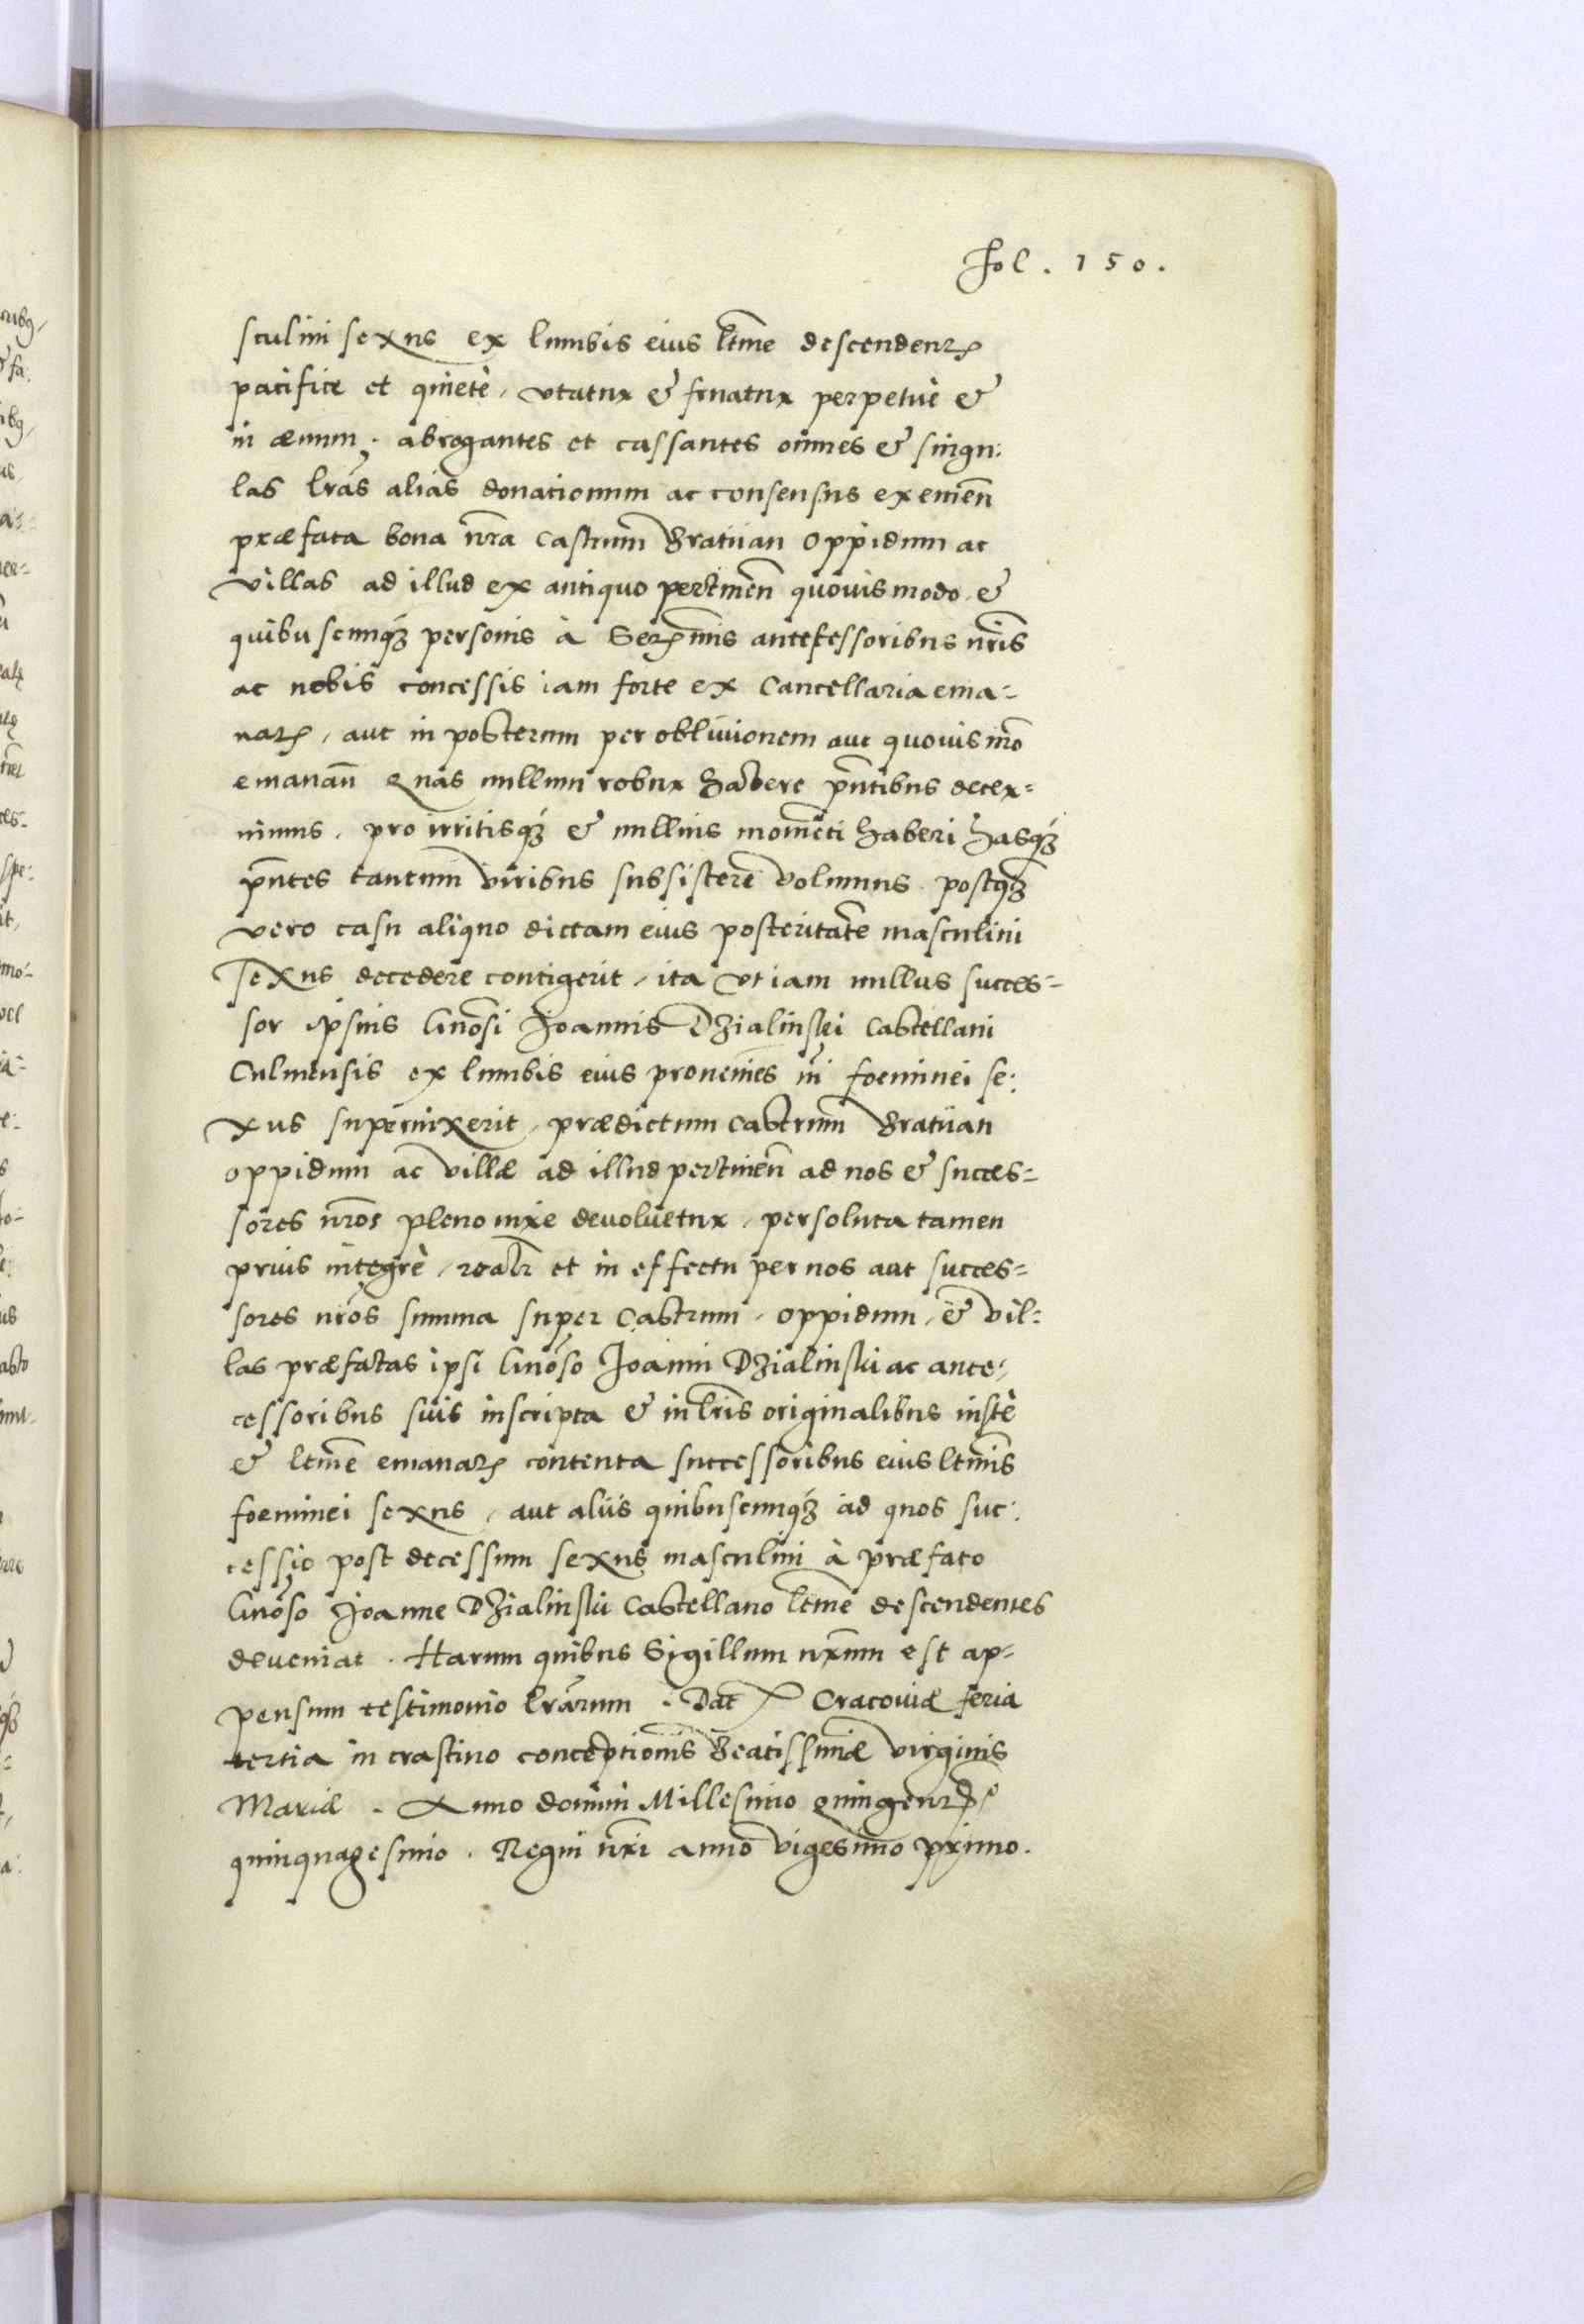 Fol. 150.
sculini sexus ex lumbis eius ltme descendent
pacifice et quietè, utatur & fruatur perpetuè &
in ævum. abrogantes et cassantes omnes & singu:
las lras alias donationum ac consensus exeuien
præfata bona nra Castrum Bratiian oppidum ac
villas ad illud ex antiquo pertinen quovismodo, &
quibuscumq3 personis à Sermis antecessoribus nris
ac nobis concessis iam forte ex Cancellaria ema=
nat, aut in posterum per oblivionem aut quovis mo
emanan Quas nullum robur habere pntibus decer=
nimus. pro irritisq3 & nullius momēti haberi hasq3
pntes tantum viribus subsistere volumus. postq3
vero casu aliquo dictam eius posteritate masculini
sexus decedere contigerit, ita ut iam nullus succes=
sor ipsius Gnosi Joannis Dzialinski Castellani
Culmensis ex lumbis eius proveniēs ni foeminei se:
xus supervixerit, prædictum Castrum Bratiian
oppidum ac villæ ad illud pertinen ad nos & succes=
sores nros pleno iure devolvetur, persoluta tamen
prius integrè, realr et in effectu per nos aut succes=
sores nros summa super Castrum, oppidum, & vil=
las præfatas ipsi Gnoso Joanni Dzialinski ac ante,
cessoribus suis inscripta & in lris originalibus iustè
& ltme emanat contenta successoribus eius ltmis
foeminei sexus, aut aliis quibuscumq3 ad quos suc:
cessio post decessum sexus masculini à præfato
Gnoso Joanne Dzialinski Castellano ltme descendentes
deveniat. Harum quibus Sigillum nrum est ap=
pensum testimonio lrarum. Dat Cracoviæ feria
tertia in crastino conceptionis Beatissimæ virginis
Mariæ. Anno domini Millesimo quingent°
quinquagesimo. Regni nri anno vigesimo primo.